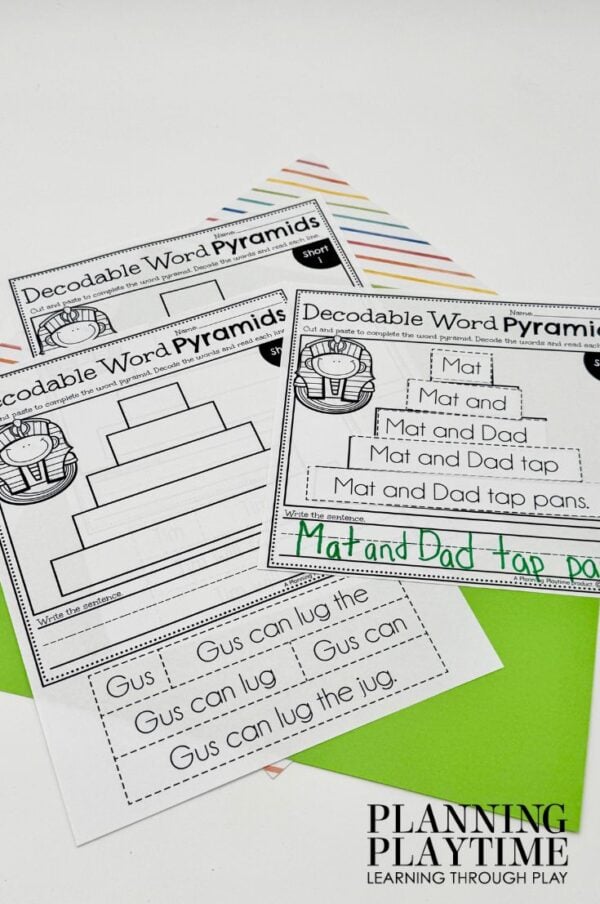 Name
Decodable Word Pyramids
Cut and paste to complete the word pyramid. Decode the words and read each line.
Short
Name
Decodable Word Pyramids
and paste to complete the word pyramid. Decode the words and read each line.
Sho
Write the sentence.
A Planning
Gus
Gus can lug the
Gus can lug
Gus can
Gus can lug the jug.
Name
Decodable Word Pyramids
Cut and paste to complete the word pyramid. Decode the words and read each
Mat
Mat and
Mat and Dad
Mat and Dad tap
Mat and Dad tap pans.
Write the sentence.
Mat and Dad tap pa
A Planning Playtime Product ©
PLANNING
PLAYTIME
LEARNING THROUGH PLAY